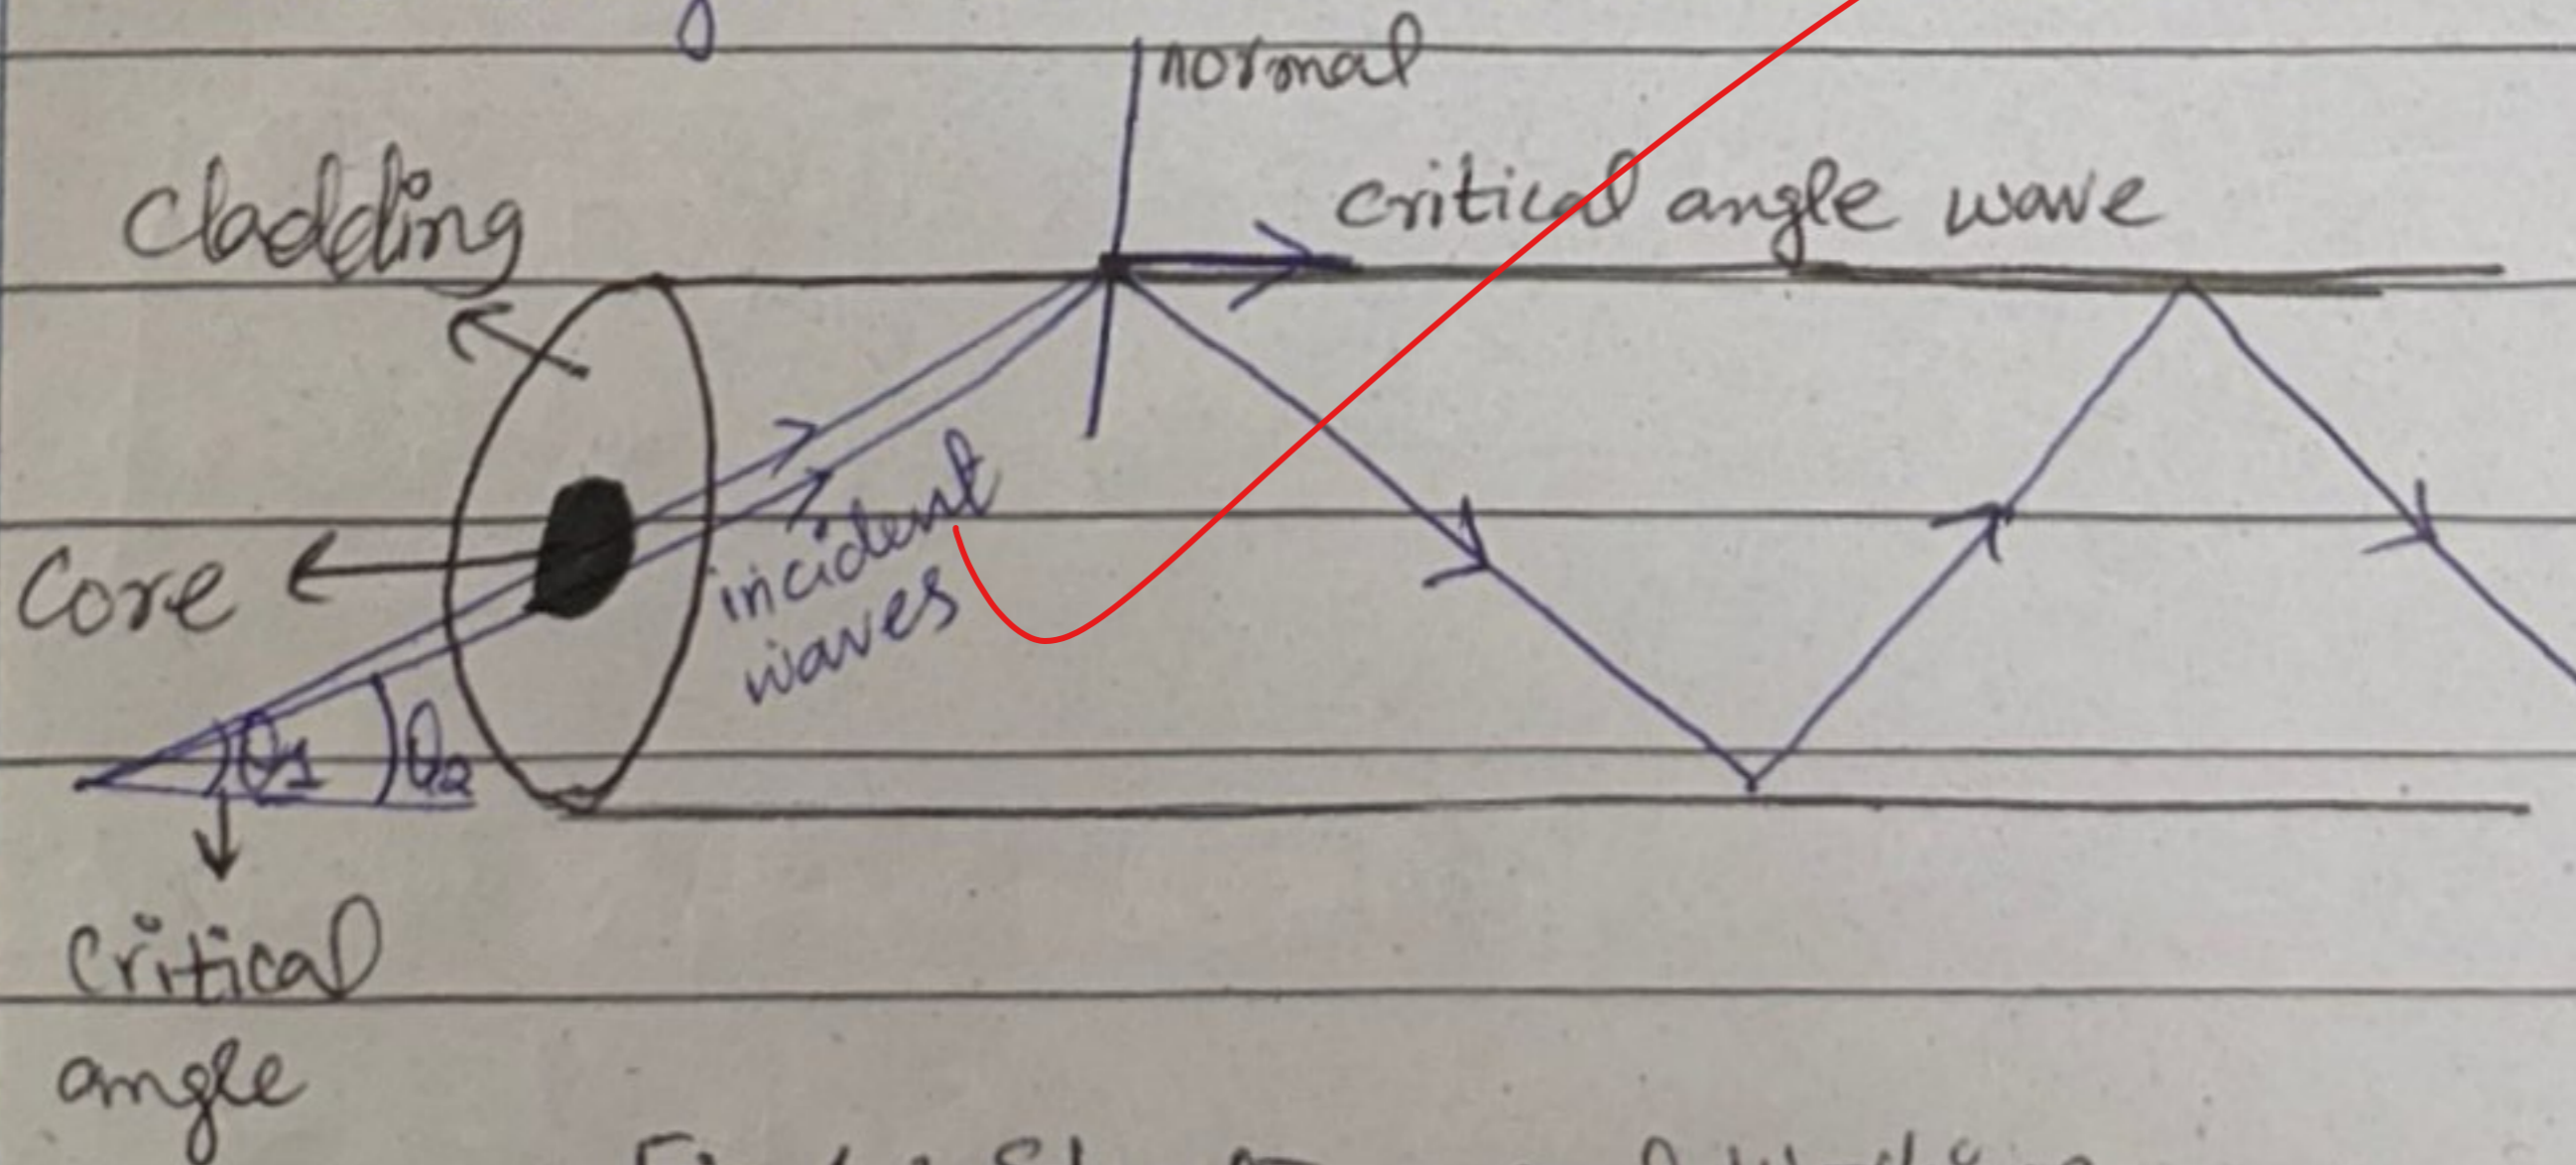 normal
Cladding
critical angle wave
Core
incident
waves
θ1
θ2
Critical
angle